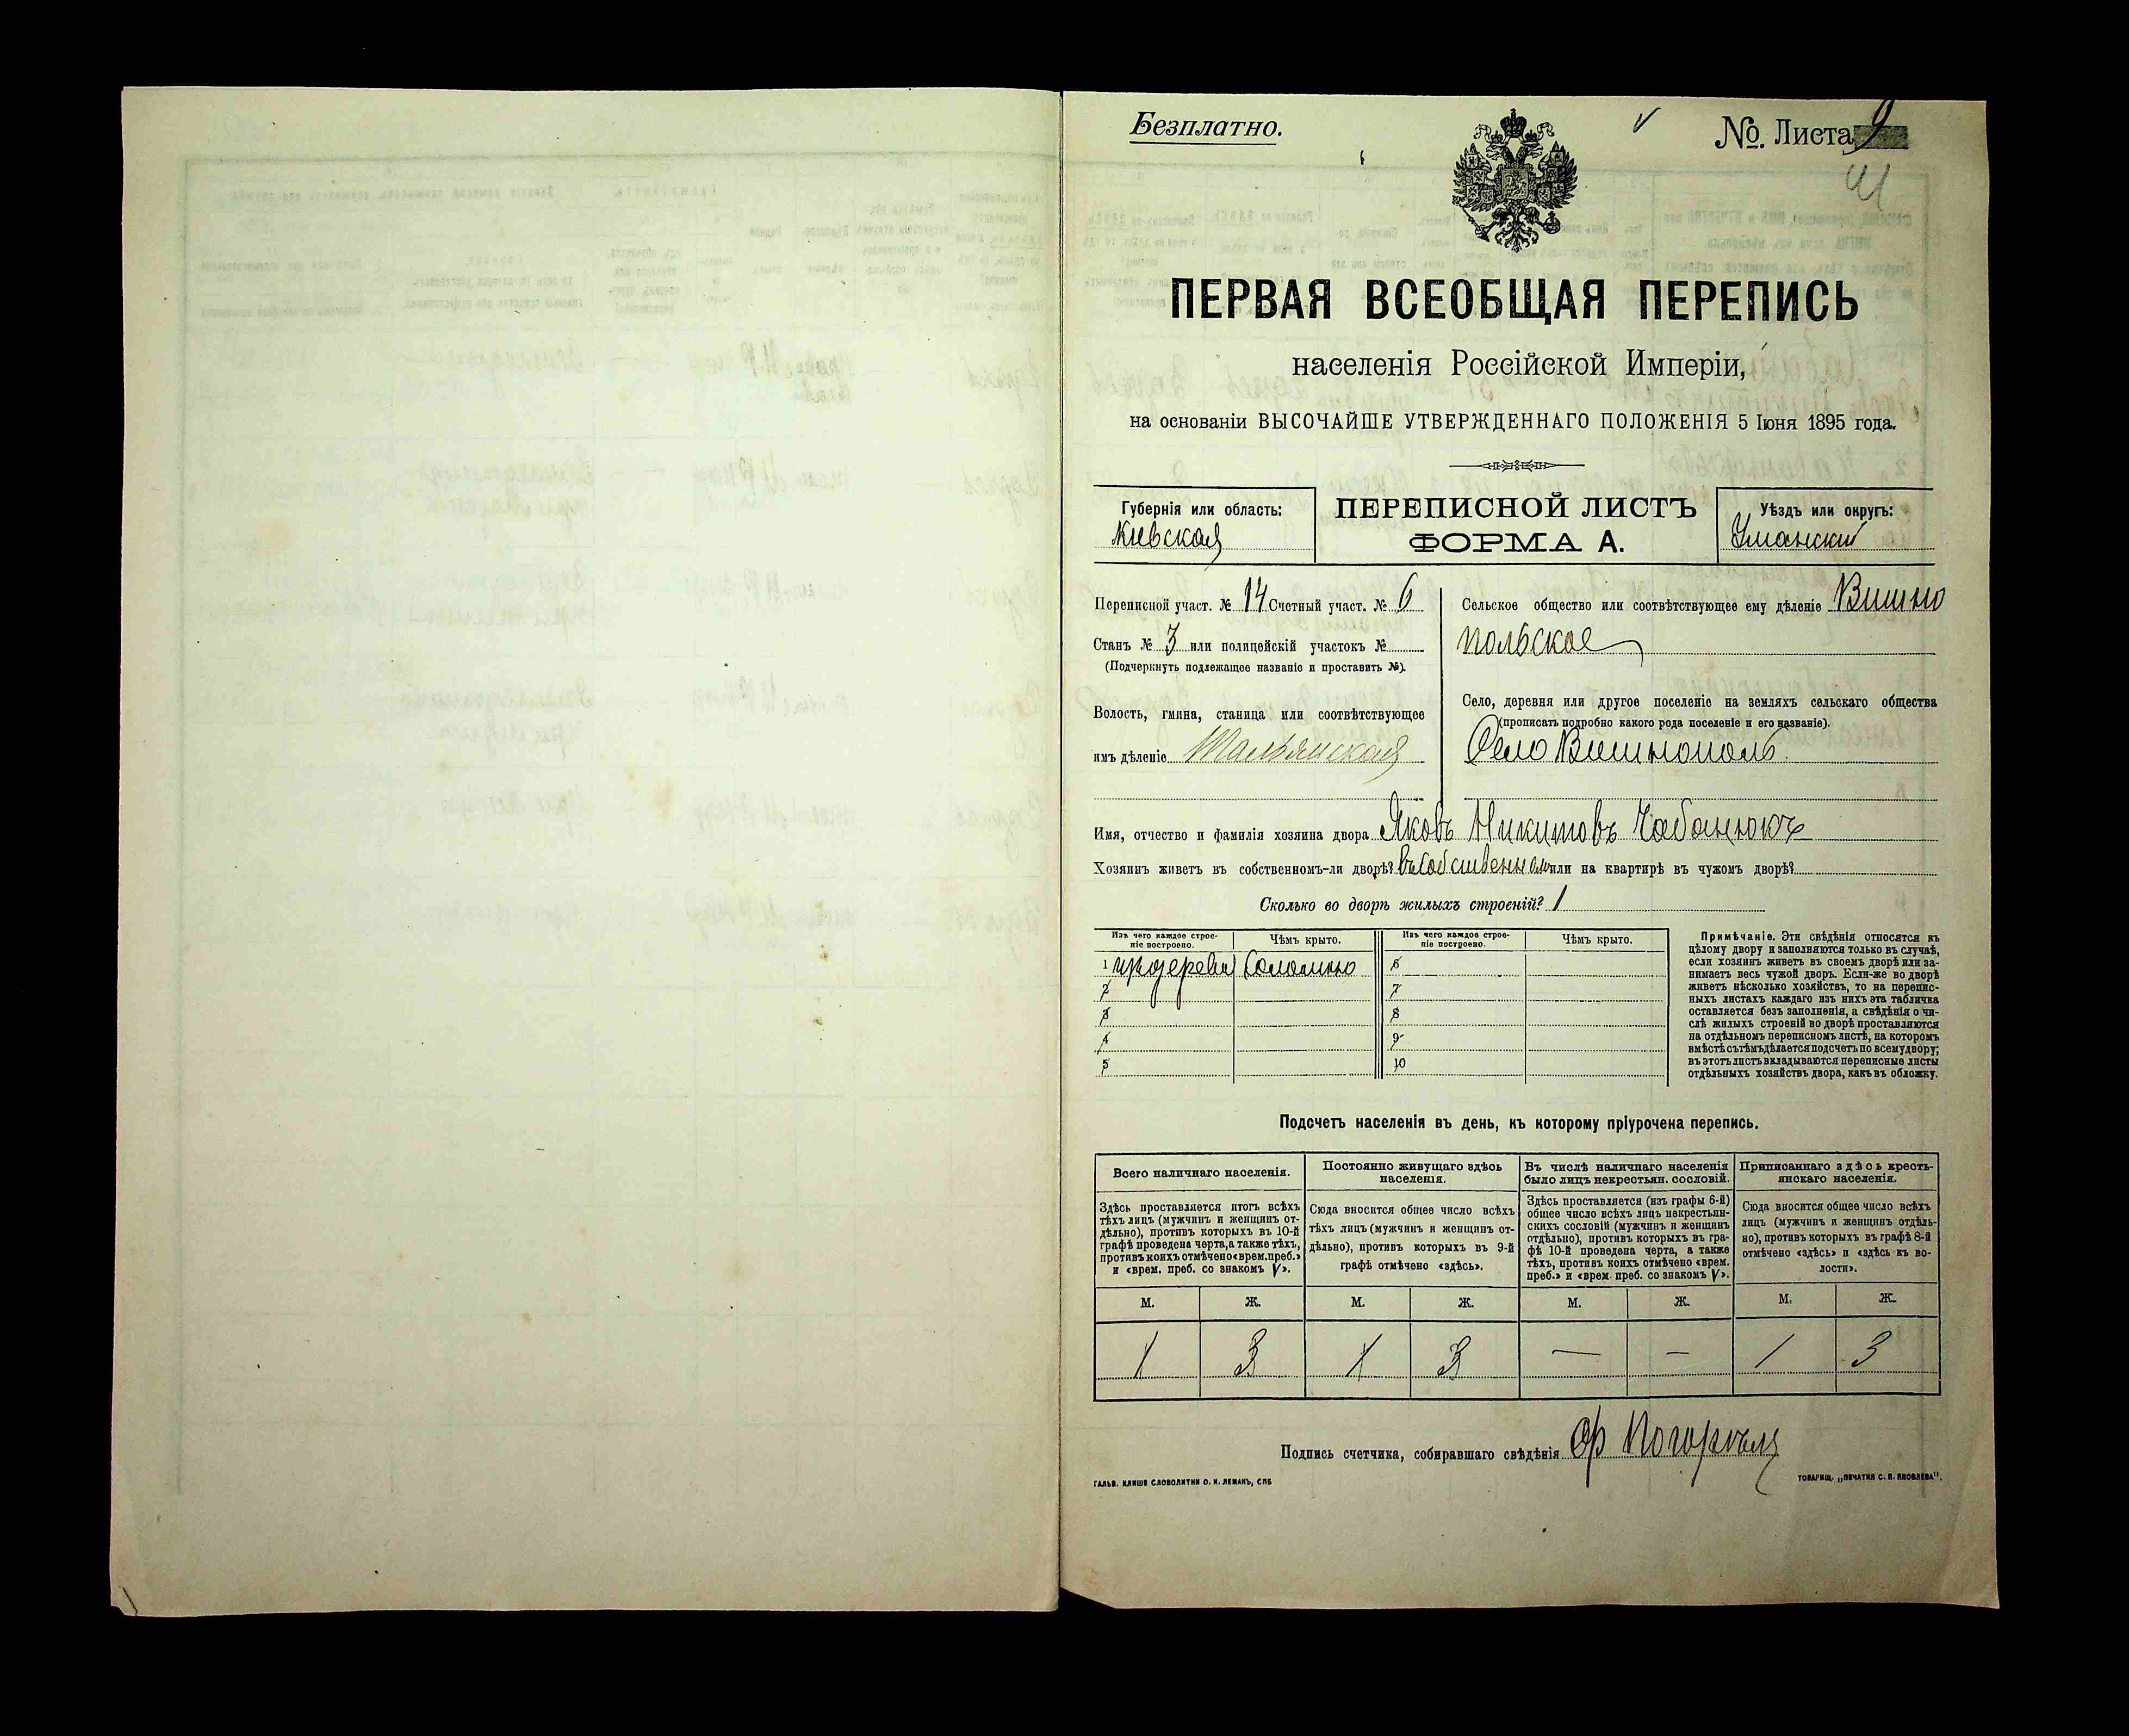 Безплатно.
№. Листа 9
41
ПЕРВАЯ ВСЕОБЩАЯ ПЕРЕПИСЬ
населенія Россійской Имперіи,
на основаніи ВЫСОЧАЙШЕ УТВЕРЖДЕННАГО ПОЛОЖЕНІЯ 5 Іюня 1895 года.
Губернія или область:
Кіевская
ПЕРЕПИСНОЙ ЛИСТЪ
ФОРМА А.
Уѣздъ или округъ:
Уманский
Переписной участ. № 14 Счетный участ. № 6
Станъ № 3 или полицейскій участокъ №
(Подчеркнуть подлежащее названіе и проставить №).
Волость, гмина, станица или соотвѣтствующее
имъ дѣленіе Тальянская
Сельское общество или соотвѣтствующее ему дѣленіе Вишно
польское
Село, деревня или другое поселеніе на земляхъ сельскаго общества
(прописать подробно какого рода поселеніе и его названіе).
Село Вишнополь.
Имя, отчество и фамилія хозяина двора Яковъ Никитовъ Чабанюкъ
Хозяинъ живетъ въ собственномъ-ли дворѣ? въ собственном или на квартирѣ въ чужомъ дворѣ?
Сколько во дворѣ жилыхъ строеній? 1
Изъ чего каждое строе-
ніе построено.
Чѣмъ крыто.
Изъ чего каждое строе-
ніе построено.
Чѣмъ крыто.
1 изъ дерева Соломою
6
2
7
3
8
4
9
5
10
Примѣчаніе. Эти свѣдѣнія относятся къ
цѣлому двору и заполняются только въ случаѣ,
если хозяинъ живетъ въ своемъ дворѣ или за-
нимаетъ весь чужой дворъ. Если-же во дворѣ
живетъ нѣсколько хозяйствъ, то на перепис-
ныхъ листахъ каждаго изъ нихъ эта табличка
оставляется безъ заполненія, а свѣдѣнія о чи-
слѣ жилыхъ строеній во дворѣ проставляются
на отдѣльномъ переписномъ листѣ, на которомъ
вмѣстѣ съ тѣмъ дѣлается подсчетъ по всему двору;
въ этотъ листъ вкладываются переписные листы
отдѣльныхъ хозяйствъ двора, какъ въ обложку.
Подсчетъ населенія въ день, къ которому пріурочена перепись.
Всего наличнаго населенія.
Постоянно живущаго здѣсь
населенія.
Въ числѣ наличнаго населенія
было лицъ некрестьян. сословій.
Приписаннаго здѣсь кресть-
янскаго населенія.
Здѣсь проставляется итогъ всѣхъ
тѣхъ лицъ (мужчинъ и женщинъ от-
дѣльно), противъ которыхъ въ 10-й
графѣ проведена черта, а также тѣхъ,
противъ коихъ отмѣчено «врем. преб.»
и «врем. преб. со знакомъ V».
Сюда вносится общее число всѣхъ
тѣхъ лицъ (мужчинъ и женщинъ от-
дѣльно), противъ которыхъ въ 9-й
графѣ отмѣчено «здѣсь».
Здѣсь проставляется (изъ графы 6-й)
общее число всѣхъ лицъ некрестьян-
скихъ сословій (мужчинъ и женщинъ
отдѣльно), противъ которыхъ въ гра-
фѣ 10-й проведена черта, а также
тѣхъ, противъ коихъ отмѣчено «врем.
преб.» и «врем. преб. со знакомъ V».
Сюда вносится общее число всѣхъ
лицъ (мужчинъ и женщинъ отдѣль-
но), противъ которыхъ въ графѣ 8-й
отмѣчено «здѣсь» и «здѣсь къ во-
лости».
М. Ж. М. Ж. М. Ж. М. Ж.
1 3 1 3 — — 1 3
Подпись счетчика, собиравшаго свѣдѣнія
ГАЛЬВ. КЛИШЕ СЛОВОЛИТНИ О. И. ЛЕМАНЪ, СПБ
ТОВАРИЩ. „ПЕЧАТНЯ С. П. ЯКОВЛЕВА".